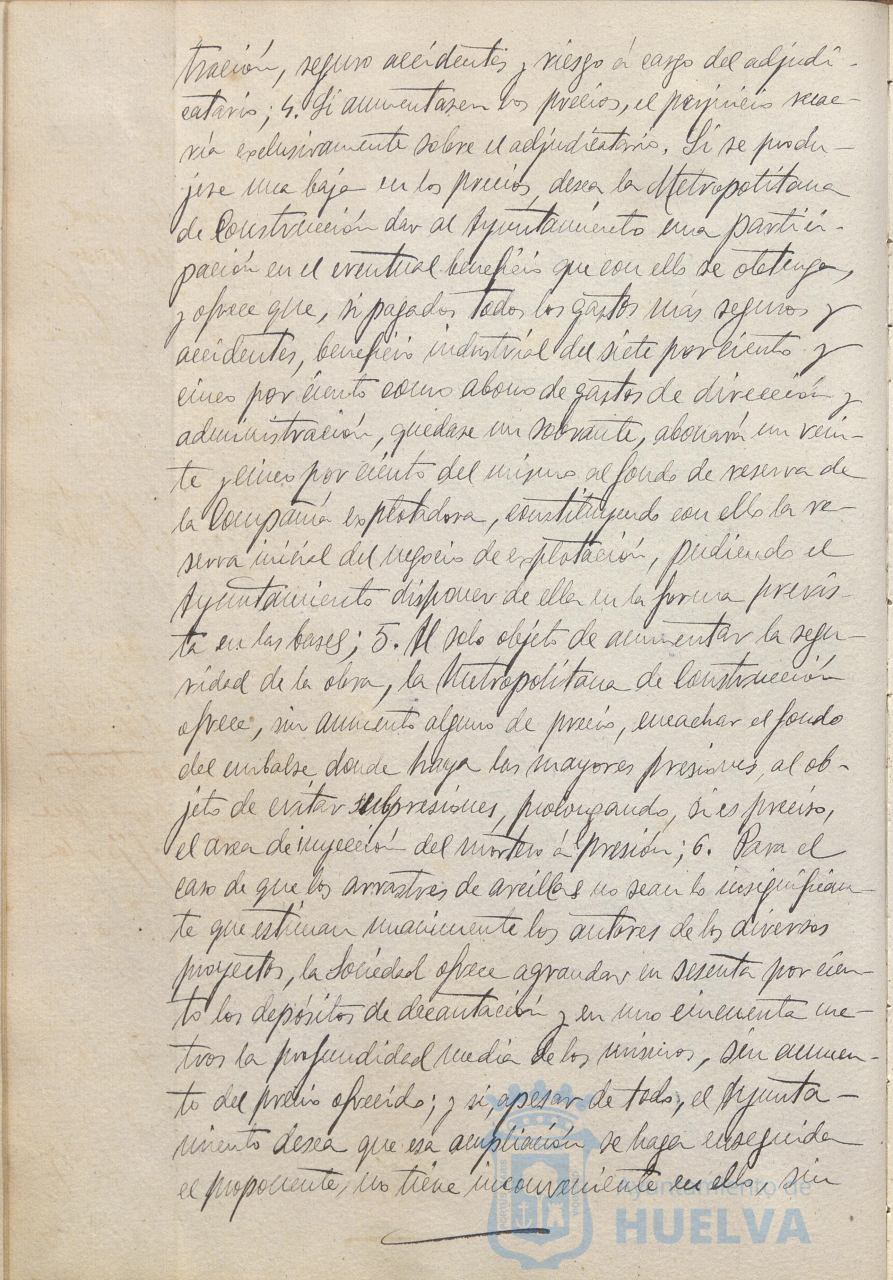 tración, seguro accidentes y riesgo á cargo del adjudi-
catario; 4. Si aumentasen los precios, el perjuicio recae-
ría exclusivamente sobre el adjudicatario. Si se produ-
jese una baja en los precios, desea la Metropolitana
de Construcción dar al Ayuntamiento una partici-
pación en el eventual beneficio que con ello se obtenga,
y ofrece que, si pagados todos los gastos más seguros y
accidentes, beneficio industrial del siete por ciento y
cinco por ciento como abono de gastos de dirección y
administración, quedase un sobrante, abonará un vein-
te y cinco por ciento del mismo al fondo de reserva de
la Compañía explotadora, constituyendo con ello la re-
serva inicial del negocio de explotación, pudiendo el
Ayuntamiento disponer de ella en la forma previs-
ta en las bases; 5. Al solo objeto de aumentar la segu-
ridad de la obra, la Metropolitana de Construcción
ofrece, sin aumento alguno de precio, encachar el fondo
del embalse donde haya las mayores presiones, al ob-
jeto de evitar subpresiones, prolongando, si es preciso,
el area de inyección del mortero á presión; 6. Para el
caso de que los arrastres de arcillas no sean lo insignifican-
te que estiman unacimente los autores de los diversos
proyectos, la Sociedad ofrece agrandar en sesenta por cien-
to los depósitos de decantación y en uno cincuenta me-
tros la profundidad media de los mismos, sin aumen-
to del precio ofrecido; y si, apesar de todo, el Ayunta-
miento desea que esa ampliación se haga enseguida
el proponente, no tiene inconveniente en ello, sin
Ayuntamiento de
HUELVA